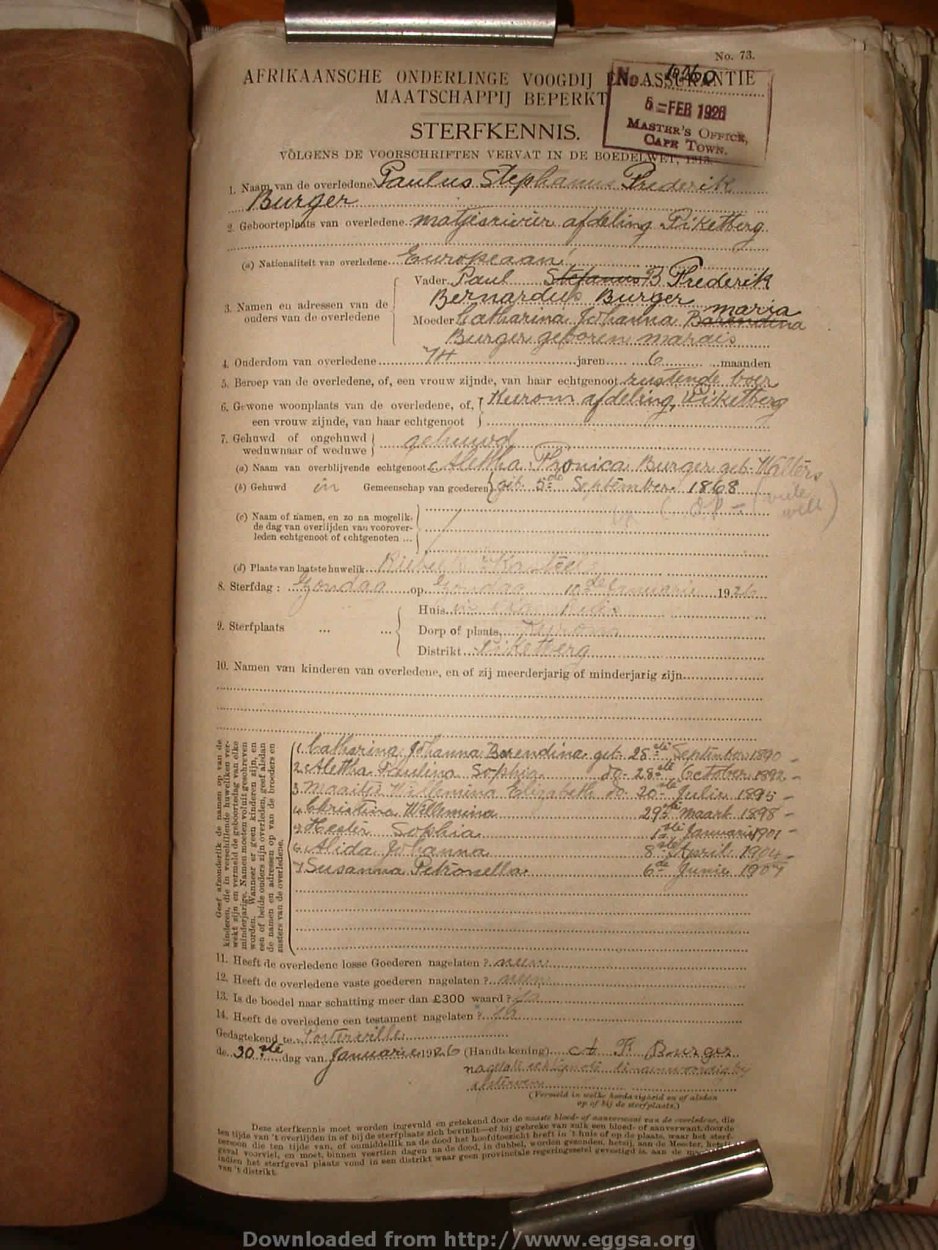 No. 73.
AFRIKAANSCHE ONDERLINGE VOOGDIJ EN ASSURANTIE
MAATSCHAPPIJ BEPERKT
No.
5 = FEB 1926
MASTER'S OFFICE,
CAPE TOWN.
STERFKENNIS.
VOLGENS DE VOORSCHRIFTEN VERVAT IN DE BOEDELWET, 1913.
1. Naam van de overledene Paulus Stephanus Frederik
Burger
2. Geboorteplaats van overledene Matjesrivier afdeling Piketberg
(a) Nationaliteit van overledene Europeaan
3. Namen en adressen van de ouders van de overledene
Vader Paul Stefanus B Frederik
Bernardus Burger
Moeder Catharina Johanna Barendina Maria
Burger geboren Marais
4. Ouderdom van overledene 74 jaren 6 maanden
5. Beroep van de overledene, of, een vrouw zijnde, van haar echtgenoot rustende boer
6. Gewone woonplaats van de overledene, of,
een vrouw zijnde, van haar echtgenoot
Keerom afdeling Piketberg
7. Gehuwd of ongehuwd
weduwnaar of weduwe
gehuwd
(a) Naam van overblijvende echtgenoot Alettha Fronica Burger geb. Walters
(b) Gehuwd in Gemeenschap van goederen geb. 5de September 1868
(c) Naam of namen, en zo na mogelik.
de dag van overlijden van voorover-
leden echtgenoot of echtgenoten ...
(d) Plaats van laatste huwelik Riebeek Kasteel
8. Sterfdag: Zondag op Zondag 10de Januarie 1926
9. Sterfplaats ... ...
Huis
Dorp of plaats Keerom
Distrikt Piketberg
10. Namen van kinderen van overledene, en of zij meerderjarig of minderjarig zijn
Geef afzonderlik de namen op van de
kinderen, die in verschillende huweliken ver-
wekt zijn en vermeld de geboortedag van elke
minderjarige. Namen moeten voluit geschreven
worden. Wanneer er geen kinderen zijn, en
een of beide ouders zijn overleden, geef alsdan
de namen en adressen op van de broeders en
zusters van de overledene.
1. Catharina Johanna Barendina geb. 25ste September 1890
2. Alettha Paulina Sophia do 28ste October 1892 -
3. Maaitje Willemina Elizabeth do 20ste Julie 1895 -
4. Christina Willemina 29ste Maart 1898 -
5. Hester Sophia 1ste Januarie 1901 -
6. Alida Johanna 8ste April 1904 -
7. Susanna Petronella 6de Junie 1907
11. Heeft de overledene losse Goederen nagelaten?
12. Heeft de overledene vaste goederen nagelaten?
13. Is de boedel naar schatting meer dan £300 waard? Ja
14. Heeft de overledene een testament nagelaten? Ja
Gedagtekend te Porterville
de 30ste dag van Januarie 1926 (Handtekening) A. F. Burger
nagelate echtgenote tenenwoordig by
afsterwen
(Vermeld in welke hoedanigheid en of alsdan
op of bij de sterfplaats.)
Deze sterfkennis moet worden ingevuld en getekend door de naaste bloed- of aanverwant van de overledene, die
ten tijde van 't overlijden in of bij de sterfplaats zich bevindt—of bij gebreke van zulk een bloed- of aanverwant, door de
persoon die ten tijde van, of onmiddellik na de dood het hoofdtoezicht heeft in 't huis of op de plaats, waar het sterf-
geval voorviel, en moet, binnen veertien dagen na de dood, in dubbel, worden gezonden, hetzij, aan de Meester, hetzij
indien het sterfgeval plaats vond in een distrikt waar geen provinciale regeringszetel gevestigd is, aan de
van 't distrikt.
Downloaded from http://www.eggsa.org